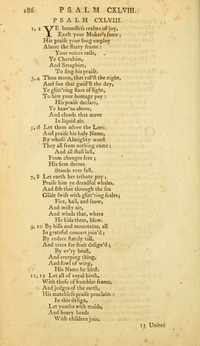 186 PSALM CXLVIII.
PSALM CXLVIII.
1, 2 YE boundless realms of joy,
Exalt your Maker's fame;
His praise your song employ
Above the starry frame:
Your voices raise,
Ye Cherubim,
And Seraphim,
To sing his praise.
3, 4 Thou moon, that rul'st the night,
And sun that guid'st the day,
Ye glitt'ring stars of light,
To him your homage pay:
His praise declare,
Ye heav'ns above,
And clouds that move
In liquid air.
5, 6 Let them adore the Lord,
And praise his holy Name,
By whose Almighty word
They all from nothing came:
And all shall last,
From changes free;
His firm decree
Stands ever fast.
7, 8 Let earth her tribute pay;
Praise him ye dreadful whales,
And fish that through the sea
Glide swift with glitt'ring scales;
Fire, hail, and snow,
And misty air,
And winds that, where
He bids them, blow.
9, 10 By hills and mountains, all
In grateful concert join'd;
By cedars stately tall,
And trees for fruit design'd;
By ev'ry beast,
And creeping thing,
And fowl of wing,
His Name be blest.
11, 12 Let all of royal birth,
With those of humbler frame,
And judges of the earth,
His matchless praise proclaim:
In this design,
Let youths with maids,
And hoary heads
With children join.
13 United